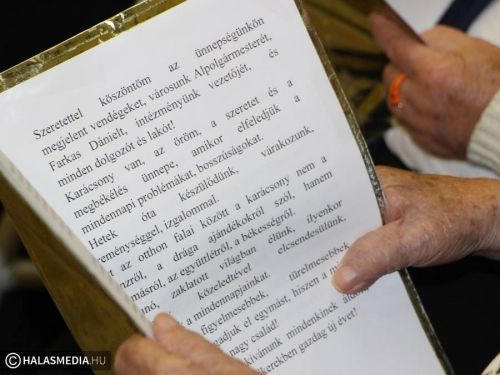 Szeretettel köszöntöm az ünnepségünkön
megjelent vendégeket, városunk Alpolgármesterét,
Farkas Dánielt, intézményünk vezetőjét, és
minden dolgozót és lakót!
Karácsony van, az öröm, a szeretet és a
megbékélés ünnepe, amikor elfeledjük a
mindennapi problémákat, bosszúságokat.
Hetek óta készülődünk, várakozunk,
reménységgel, izgalommal.
az otthon falai között a karácsony nem a
a drága ajándékokról szól, hanem
az együttlétről, a békességről.
zaklatott világban élünk, ilyenkor
közeledtével elcsendesülünk,
a mindennapjainkat.
figyelmesebbek, türelmesebbek
el egymást, hiszen a mi
nagy család!
kívánunk mindenkinek áldott
gazdag új évet!
© HALASMEDIA.HU